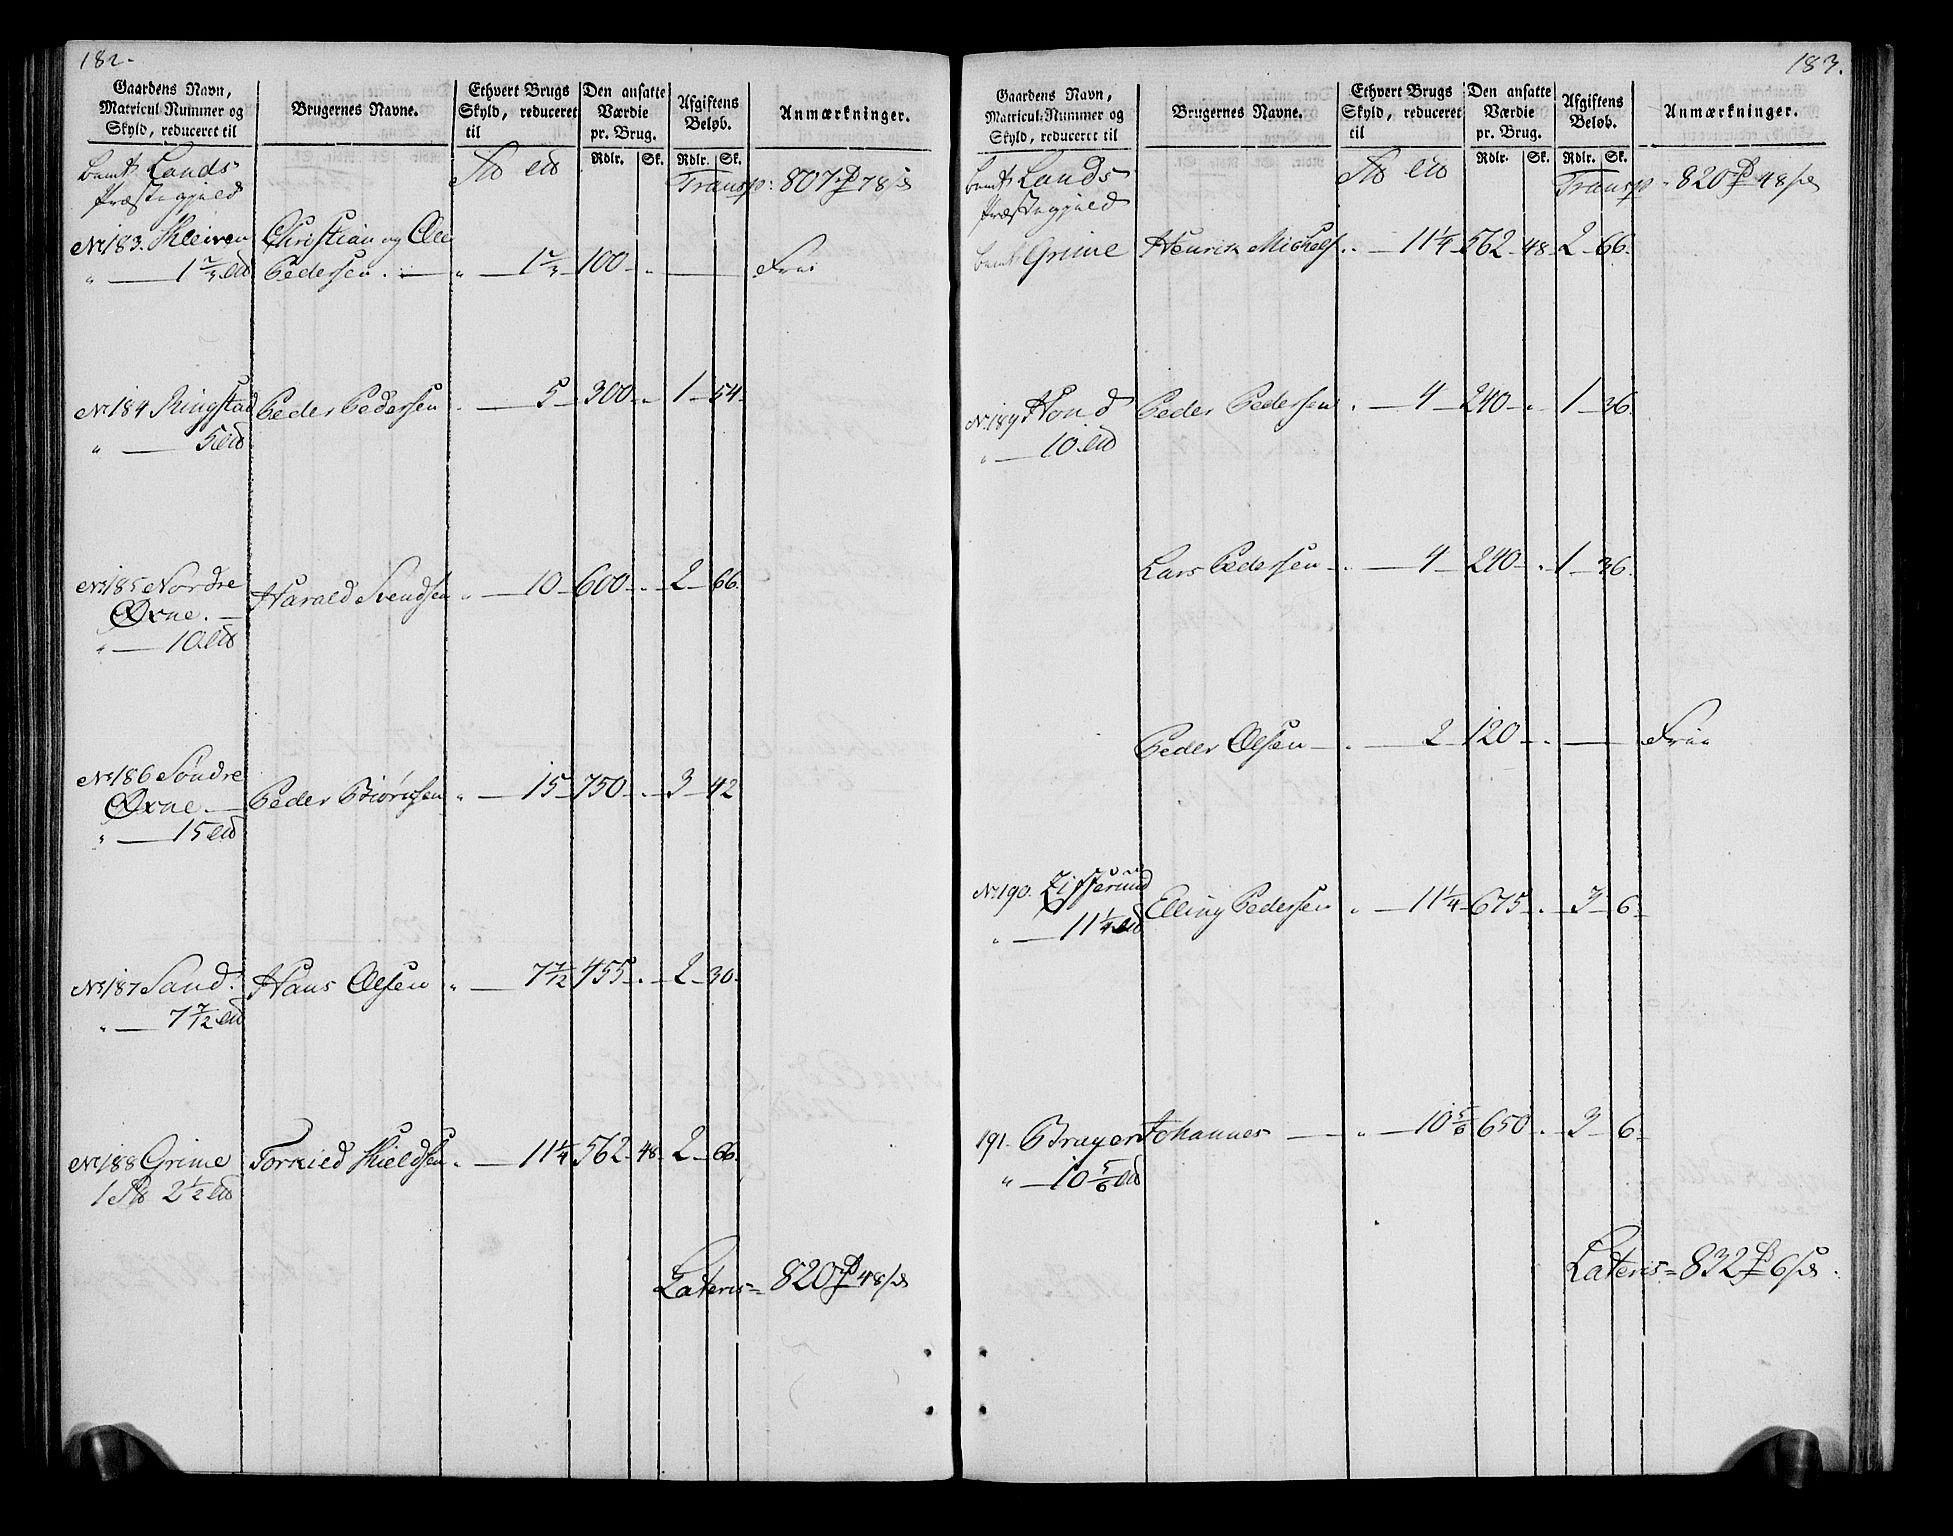 182.
Gaardens Navn, Matricul-Nummer og Skyld, reduceret til
Brugernes Navne.
Ethvert Brugs Skyld, reduceret til
Den ansatte Værdie pr. Brug.
Afgiftens Beløb.
Anmærkninger.
Rdlr. Sk. Rdlr. Sk.
bemte Lands
Præstegjeld
Transp: 807 78
No 183. Kleiven Christian og Ole
" — 1 2/3 Pedersen. — " — 1 2/3 100 — " — Frie
No 184 Ringstad Peder Pedersen " — 5 — 300 — " — 1 — 54
" — 5
No 185 Nordre Harald Svendsen " — 10 — 600 — " — 2 — 66
Øxne. —
" — 10
No 186 Søndre
Øxne. — Peder Biørnsen " — 15 — 750 — " — 3 — 42
" — 15
No 187 Sand. Hans Olsen " — 7 7/12 455 — " — 2 — 30
" — 7 7/12
No 188 Grime Torkield Kieldsen " — 11 1/4 562 — 48 — 2 — 66
1 2 1/2
Lateris = 820 48
183.
Gaardens Navn, Matricul-Nummer og Skyld, reduceret til
Brugernes Navne.
Ethvert Brugs Skyld, reduceret til
Den ansatte Værdie pr. Brug.
Afgiftens Beløb.
Anmærkninger.
Rdlr. Sk. Rdlr. Sk.
bemte Lands
Præstegjeld
Transp 820 48
bemte Grime Henrich Michels. " — 11 1/4 562 — 48 — 2 — 66
No 189 Hond Peder Pedersen " — 4 — 240 — " — 1 — 36
" — 10
Lars Pedersen — " — 4 — 240 — " — 1 — 36
Peder Olsen — " — 2 — 120 — " — Frie
No 190. Elling Pedersen " — 11 1/4 675 — " — 3 — 6
" — 11 1/4
191. Brager Johannes — " — 10 5/6 650 — " — 3 — 6
" — 10 5/6
Lateris = 832 6